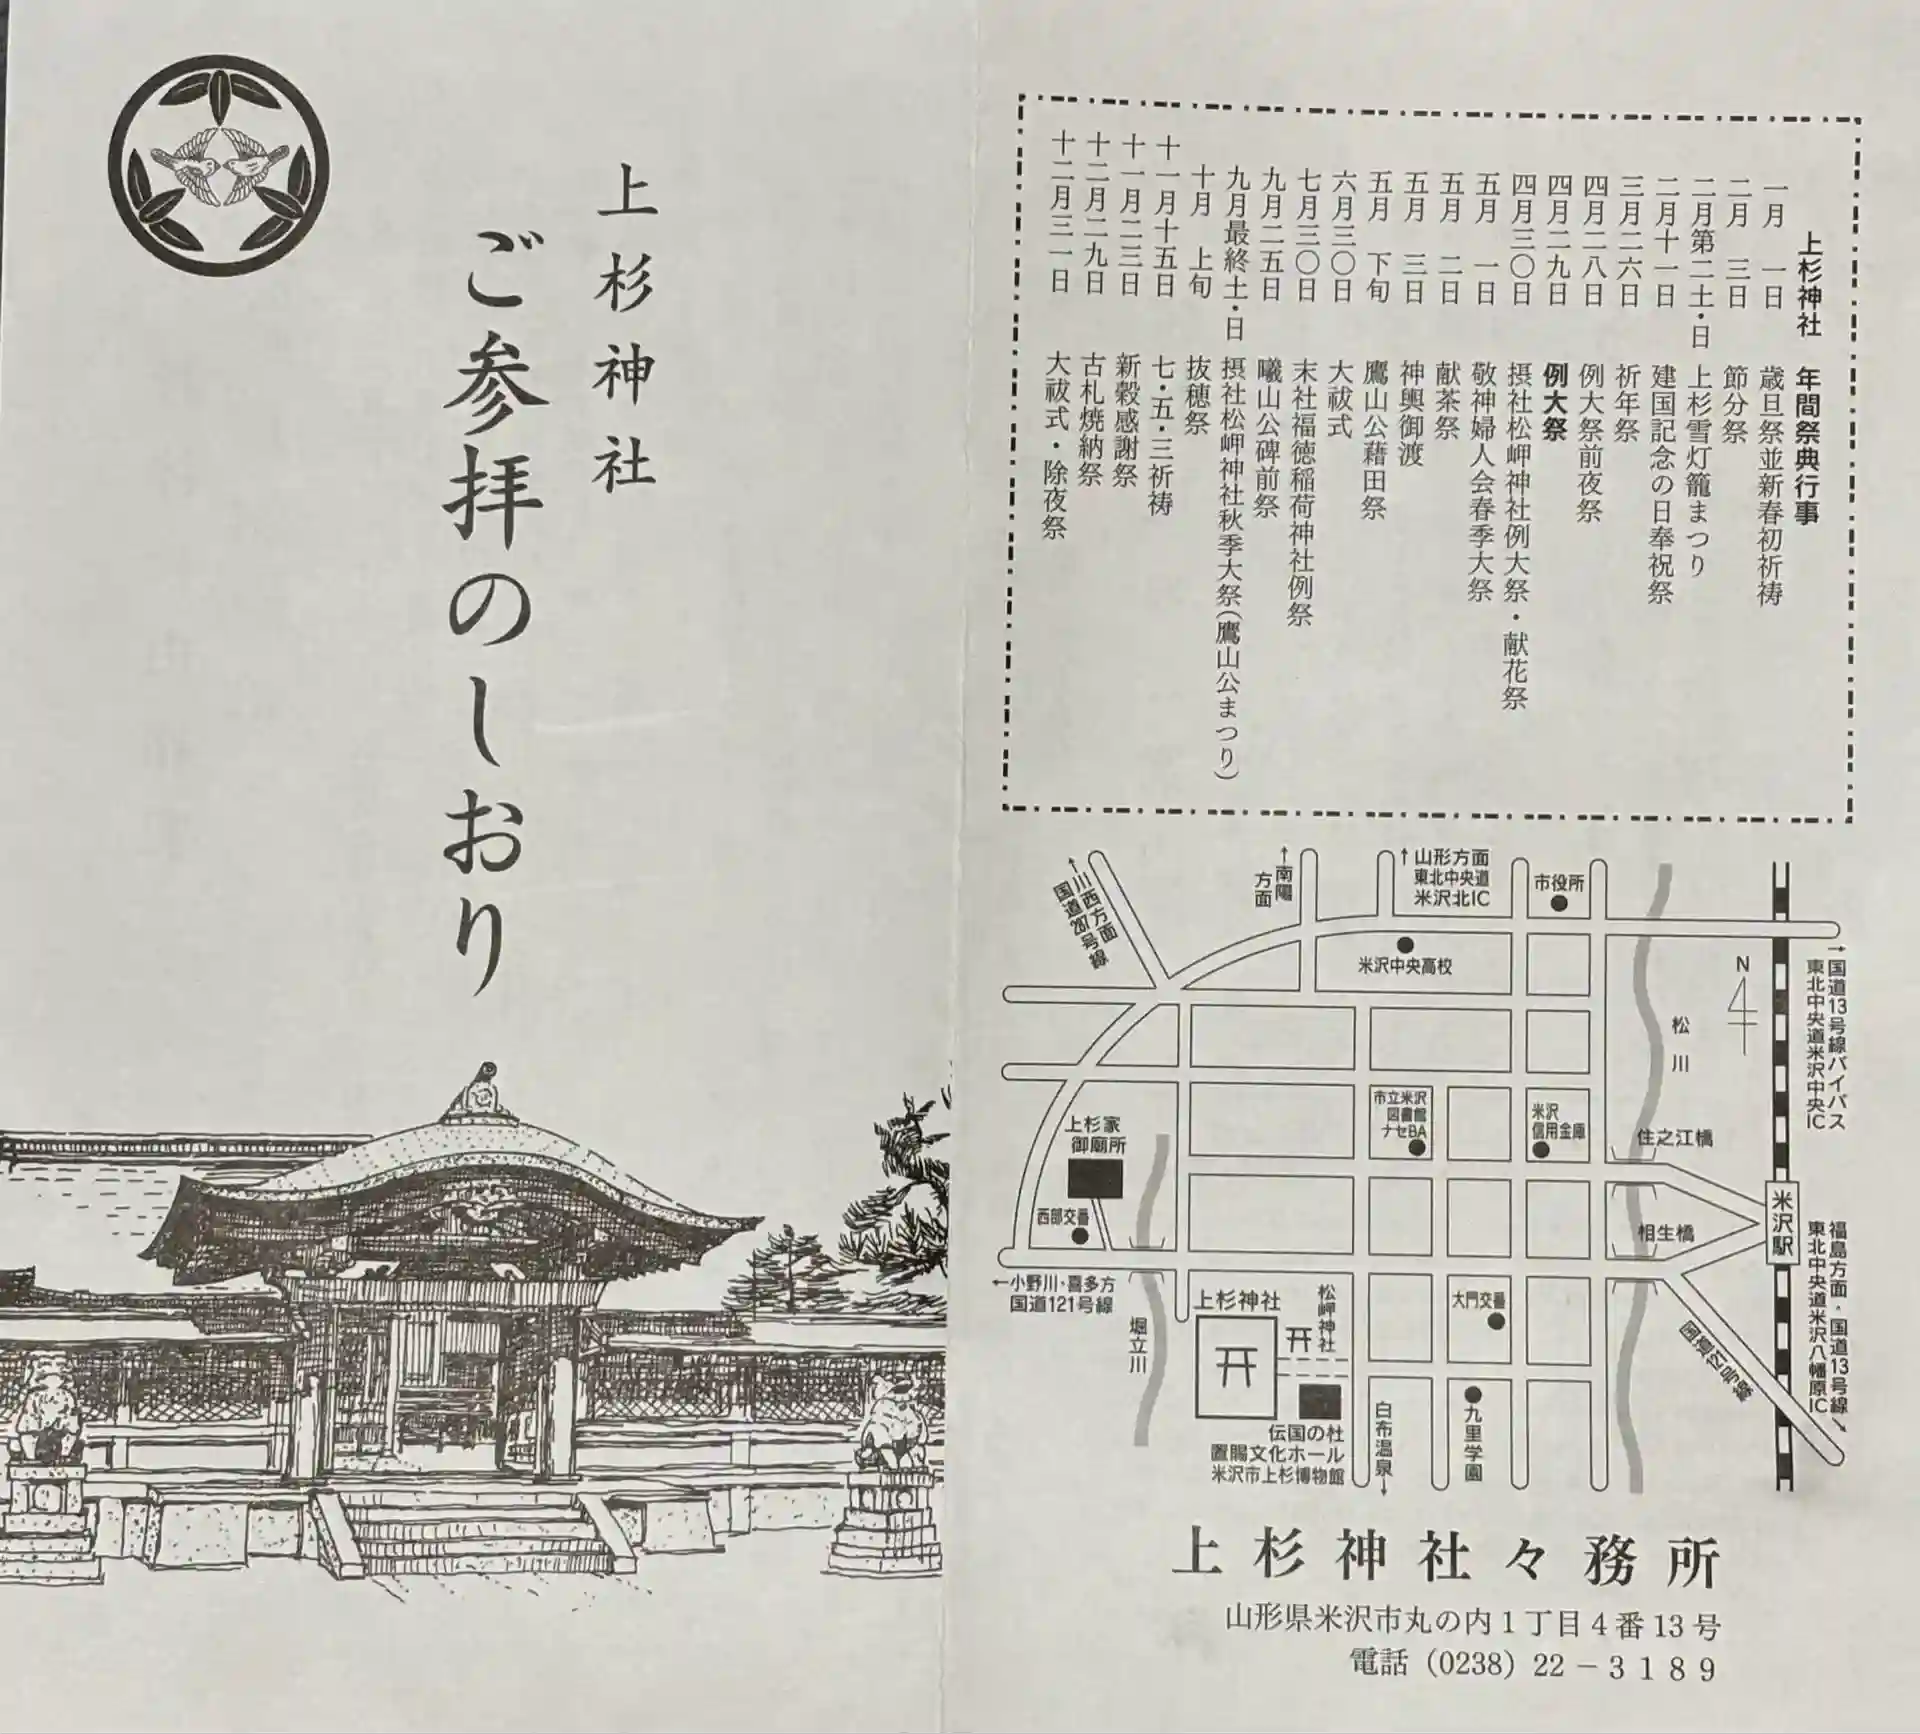 上杉神社
ご参拝のしおり
上杉神社 年間祭典行事
一月 一日 歳旦祭並新春初祈祷
二月 三日 節分祭
二月第二土・日 上杉雪灯籠まつり
二月十一日 建国記念の日奉祝祭
三月二六日 祈年祭
四月二八日 例大祭前夜祭
四月二九日 例大祭
四月三〇日 摂社松岬神社例大祭・献花祭
五月 一日 敬神婦人会春季大祭
五月 二日 献茶祭
五月 三日 神輿御渡
五月 下旬 鷹山公藉田祭
六月三〇日 大祓式
七月三〇日 末社福徳稲荷神社例祭
九月二五日 曦山公碑前祭
九月最終土・日 摂社松岬神社秋季大祭(鷹山公まつり)
十月 上旬 抜穂祭
十一月十五日 七・五・三祈祷
十一月二三日 新穀感謝祭
十二月二九日 古札焼納祭
十二月三一日 大祓式・除夜祭
↑川西方面
国道287号線
↑南陽
方面
↑山形方面
東北中央道
米沢北IC
市役所
米沢中央高校
N
松川
→国道13号線バイパス
東北中央道米沢中央IC
市立米沢
図書館
ナセBA
米沢
信用金庫
住之江橋
上杉家
御廟所
西部交番
相生橋
米沢駅
福島方面・国道13号線→
東北中央道米沢八幡原IC
←小野川・喜多方
国道121号線
堀立川
上杉神社
松岬神社
大門交番
国道121号線
伝国の杜
置賜文化ホール
米沢市上杉博物館
白布温泉→
九里学園
上杉神社々務所
山形県米沢市丸の内1丁目4番13号
電話(0238)22－3189